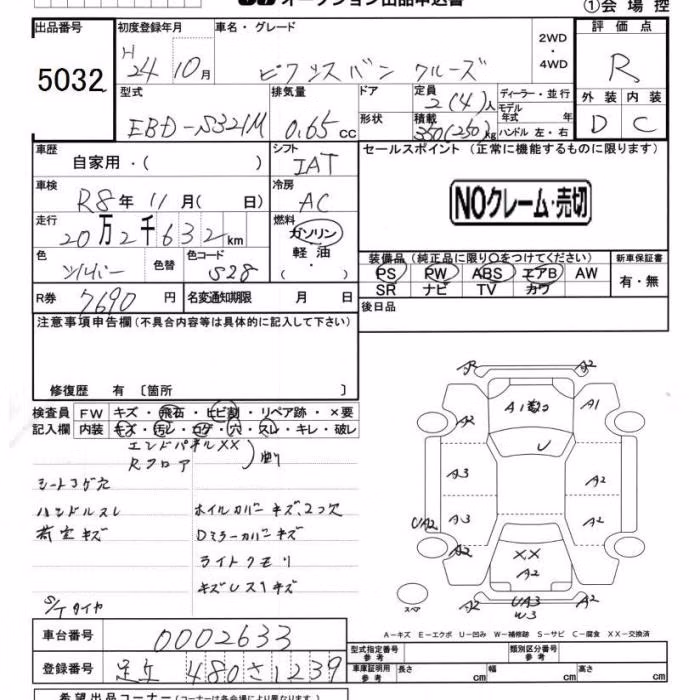 オークション出品申込書
①会場控
出品番号
5032
初度登録年月
H
24 10月
車名・グレード
ピクシスバン クルーズ
2WD
・
4WD
評価点
R
外装 内装
D C
型式
EBD-S321M
排気量
0.65 cc
ドア
形状
定員
2(4)人
積載
350(250)kg
ディーラー・並行
モデル
年式 年
ハンドル 左・右
車歴
自家用・( )
シフト
IAT
車検
R8年 11月( 日)
冷房
AC
走行
20万2千632km
燃料
ガソリン
軽油
( ・ )
色
シルバー
色替
色コード
S28
R券
7690円
名変通知期限 月 日
セールスポイント(正常に機能するものに限ります)
NOクレーム・売切
装備品(純正品に限り○をつけてください)
PS PW ABS エアB AW
SR ナビ TV カワ
新車保証書
有・無
後日品
注意事項申告欄(不具合内容等は具体的に記入して下さい)
修復歴 有 〔箇所 〕
検査員 FW キズ・飛石・ヒビ割・リペア跡・×要
記入欄 内装 キズ・汚レ・コゲ・穴・スレ・キレ・破レ
エンドパネルXX
Rフロア
シートコゲ穴
ハンドルスレ
荷室キズ
ホイルカバーキズ、2コ欠
Dミラーカバーキズ
ライトクモリ
S/Tタイヤ
A2 A2
A1 A1
A2
U
A3 A2
A3 A2
UA2
A2
XX
A2
スペア
A2 UA3 A2
W3
A-キズ E-エクボ U-凹み W-補修跡 S-サビ C-腐食 XX-交換済
車台番号
0002633
登録番号
足立 480さ1239
型式指定番号
参考
類別区分番号
参考
車庫証明用
参考
長さ cm 幅 cm 高さ cm
希望出品コーナー(コーナーは各会場により異なります。)